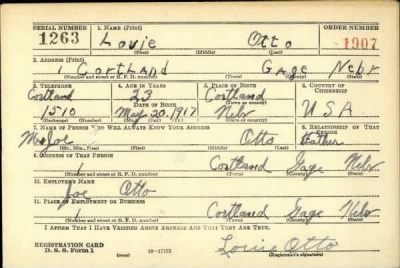 SERIAL NUMBER 1. NAME (Print) ORDER NUMBER
1263 Lovie Otto 1907
(First) (Middle) (Last)
2. ADDRESS (Print)
1 Cortland Gage Nebr
(Number and street or R. F. D. number) (Town) (County) (State)
3. TELEPHONE 4. AGE IN YEARS 5. PLACE OF BIRTH 6. COUNTRY OF CITIZENSHIP
Cortland 23 Cortland
DATE OF BIRTH
1510 May 20, 1917 Nebr USA
(Exchange) (Number) (Mo.) (Day) (Yr.) (State or country)
7. NAME OF PERSON WHO WILL ALWAYS KNOW YOUR ADDRESS 8. RELATIONSHIP OF THAT PERSON
Mr Joe Otto Father
(Mr., Mrs., Miss) (First) (Middle) (Last)
9. ADDRESS OF THAT PERSON
Cortland Gage Nebr
(Number and street or R. F. D. number) (Town) (County) (State)
10. EMPLOYER'S NAME
Joe Otto
11. PLACE OF EMPLOYMENT OR BUSINESS
1 Cortland Gage Nebr
(Number and street or R. F. D. number) (Town) (County) (State)
I AFFIRM THAT I HAVE VERIFIED ABOVE ANSWERS AND THAT THEY ARE TRUE.
REGISTRATION CARD
D. S. S. Form 1 (over) Louie Otto
(Registrant's signature)